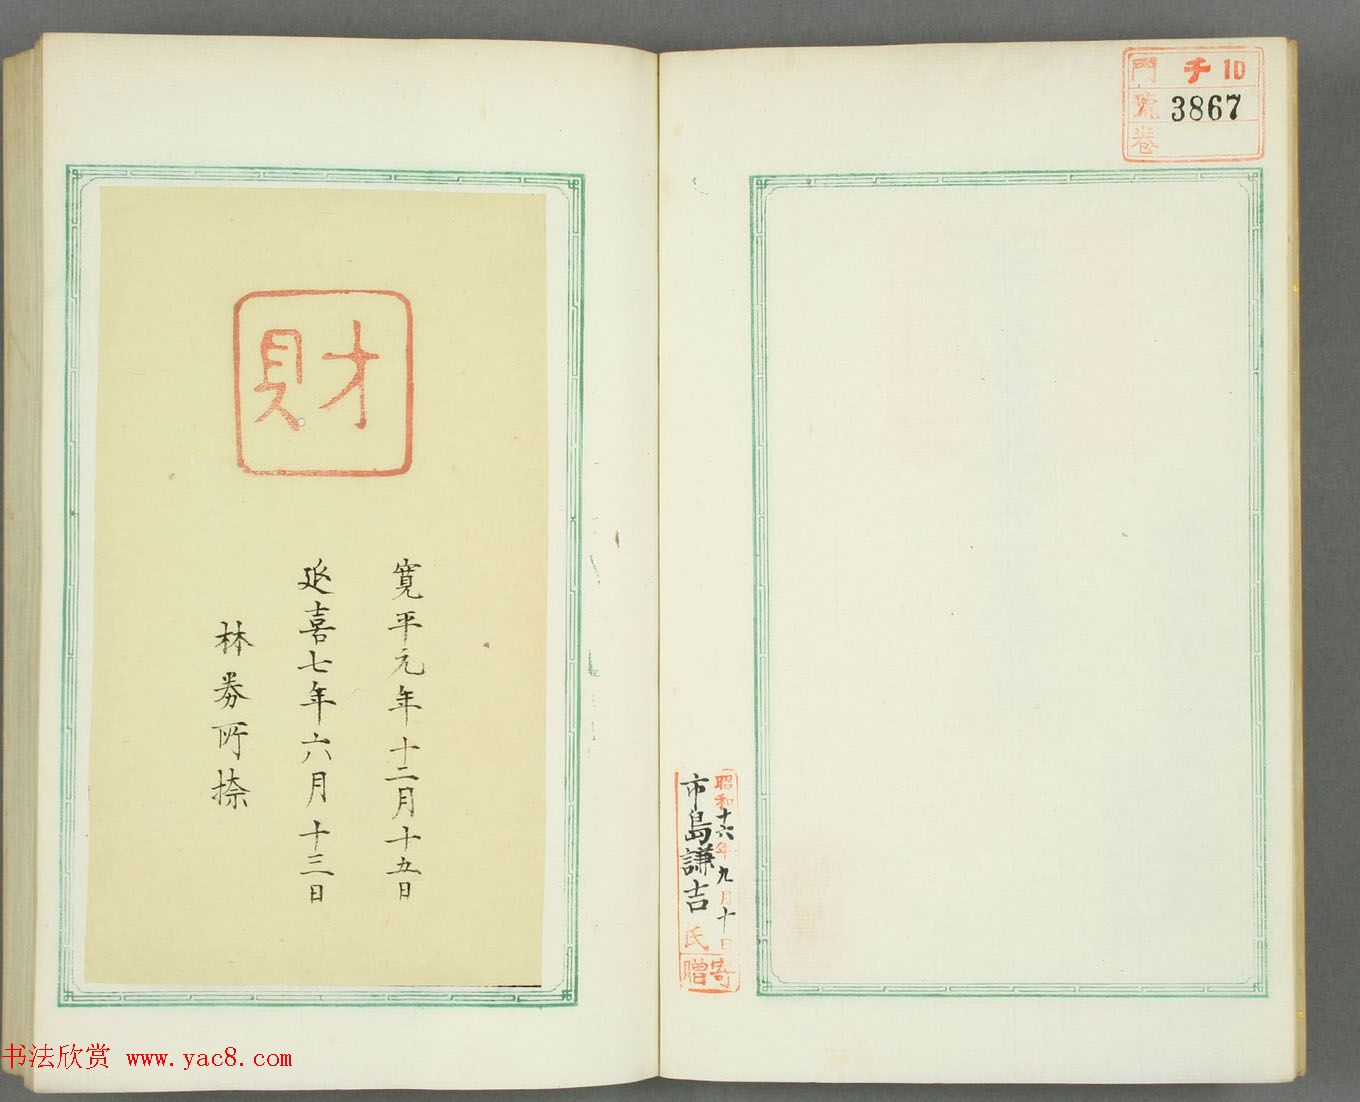 門 チ 10
號 3867
卷
昭和十六年九月十日
市島謙吉氏寄贈
財
寛平元年十二月十五日
延喜七年六月十三日
林券所捺
书法欣赏 www.yac8.com